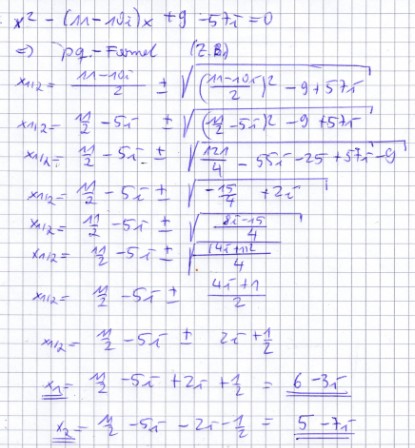 x² - (11-10i)x + 9 - 57i = 0
=> pq.-Formel (z.B.)
x₁/₂ = (11-10i)/2 ± √((11-10i)/2)² - 9 + 57i
x₁/₂ = 11/2 - 5i ± √(11/2 - 5i)² - 9 + 57i
x₁/₂ = 11/2 - 5i ± √121/4 - 55i - 25 + 57i - 9
x₁/₂ = 11/2 - 5i ± √-15/4 + 2i
x₁/₂ = 11/2 - 5i ± √(8i-15)/4
x₁/₂ = 11/2 - 5i ± √(4i+1)²/4
x₁/₂ = 11/2 - 5i ± (4i+1)/2
x₁/₂ = 11/2 - 5i ± 2i + 1/2
x₁ = 11/2 - 5i + 2i + 1/2 = 6 - 3i
x₂ = 11/2 - 5i - 2i - 1/2 = 5 - 7i